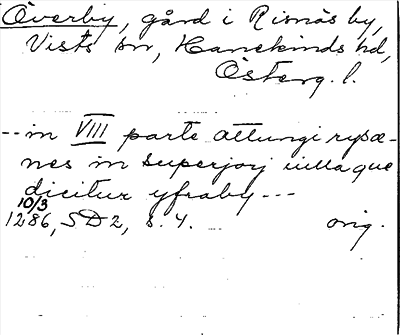 Överby, gård i Risnäs by,
Vists sn, Hanekinds hd,
Österg. l.
-- in VIII parte attungi rysæ-
nes in superjorj uilla que
dicitur yfraby ---
10/3
1286, SD2, s. 4. orig.